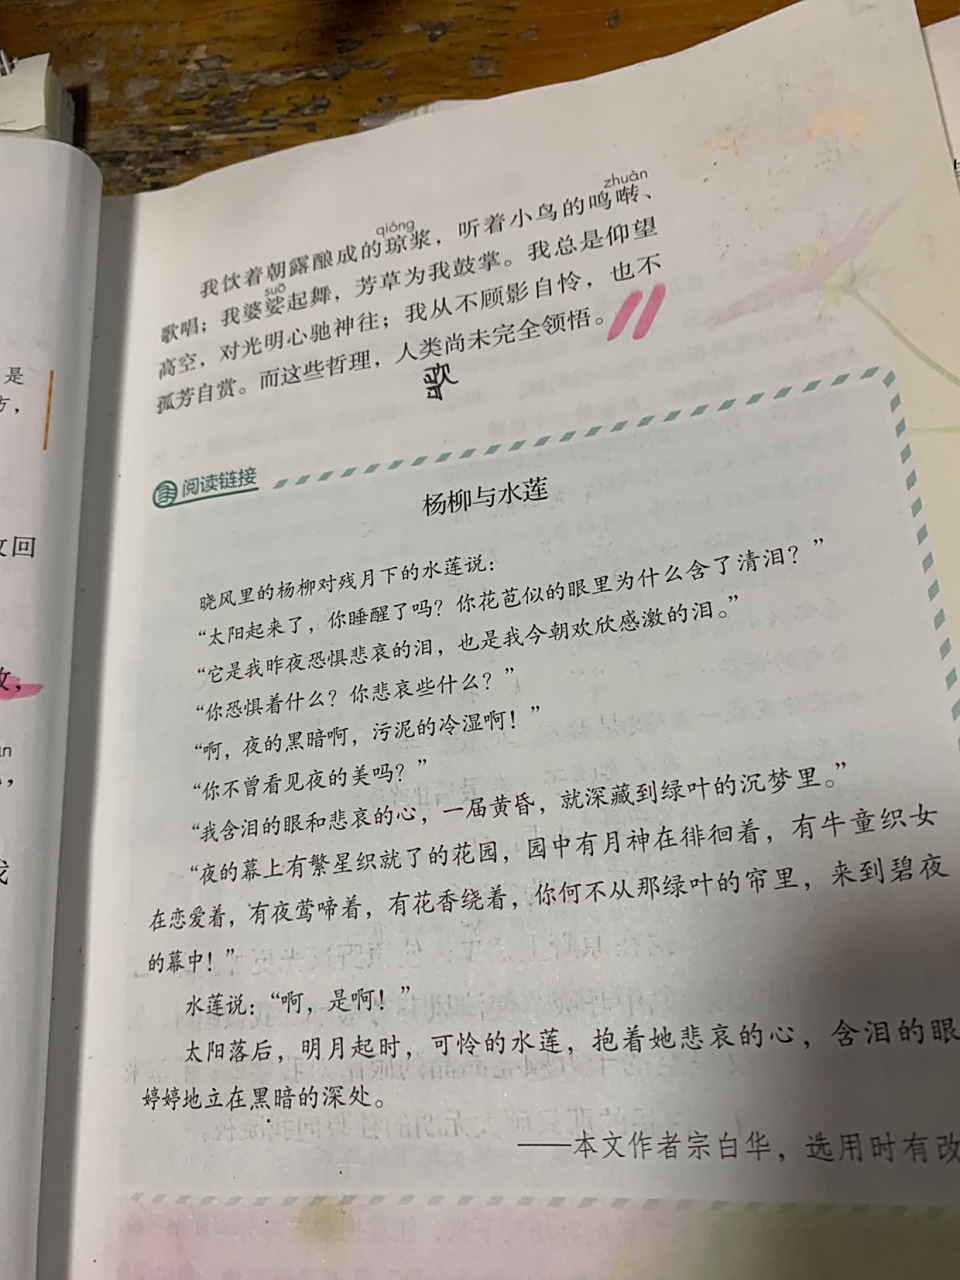 qióng
zhuàn
我饮着朝露酿成的琼浆，听着小鸟的鸣啭、
suō
歌唱；我婆娑起舞，芳草为我鼓掌。我总是仰望
高空，对光明心驰神往；我从不顾影自怜，也不
孤芳自赏。而这些哲理，人类尚未完全领悟。
歌
阅读链接
杨柳与水莲
晓风里的杨柳对残月下的水莲说：
“太阳起来了，你睡醒了吗？你花苞似的眼里为什么含了清泪？”
“它是我昨夜恐惧悲哀的泪，也是我今朝欢欣感激的泪。”
“你恐惧着什么？你悲哀些什么？”
“啊，夜的黑暗啊，污泥的冷湿啊！”
“你不曾看见夜的美吗？”
“我含泪的眼和悲哀的心，一届黄昏，就深藏到绿叶的沉梦里。”
“夜的幕上有繁星织就了的花园，园中有月神在徘徊着，有牛童织女
在恋爱着，有夜莺啼着，有花香绕着，你何不从那绿叶的帘里，来到碧夜
的幕中！”
水莲说：“啊，是啊！”
太阳落后，明月起时，可怜的水莲，抱着她悲哀的心，含泪的眼
婷婷地立在黑暗的深处。
——本文作者宗白华，选用时有改